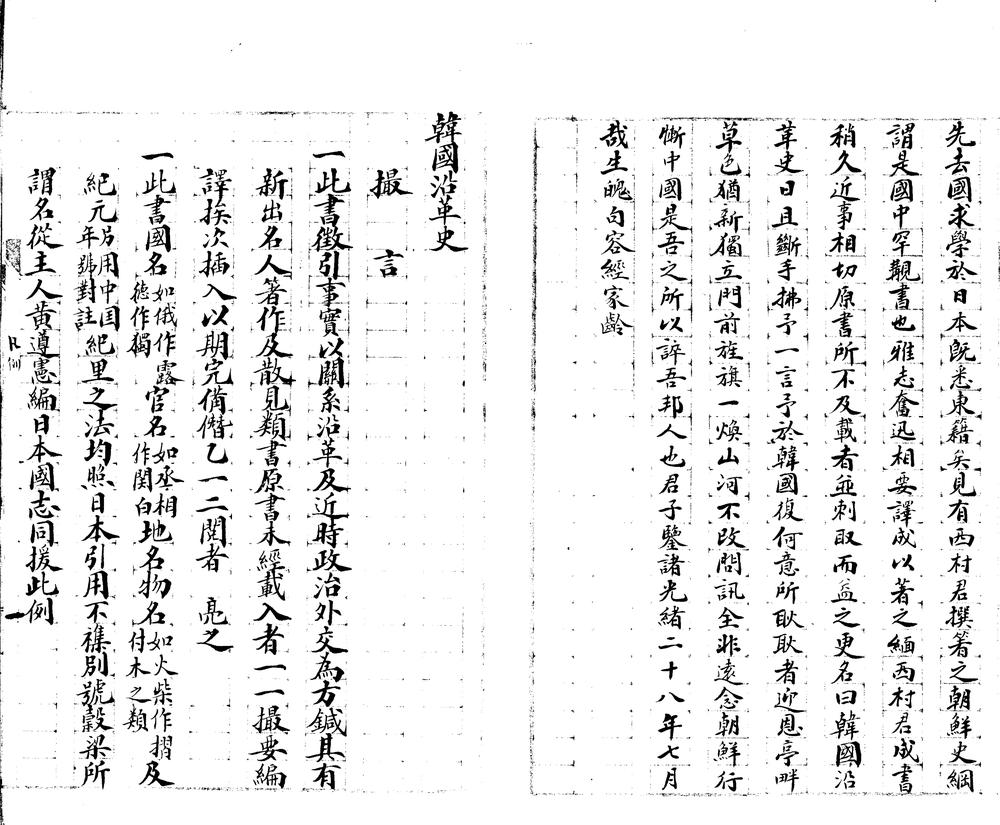 先去國求學於日本既悉東籍矣見有西村君撰著之朝鮮史綱
謂是國中罕覯書也雅志奮迅相要譯成以著之緬西村君成書
稍久近事相切原書所不及載者並刺取而益之更名曰韓國沿
革史日且斷手拂予一言予於韓國復何意所耿耿者迎恩亭畔
草色猶新獨立門前旌旗一煥山河不改問訊全非遠念朝鮮行
慚中國是吾之所以誶吾邦人也君子鑒諸光緒二十八年七月
哉生魄句容經家齡
韓國沿革史
撮言
一此書徵引事實以關系沿革及近時政治外交為方鍼具有
新出名人著作及散見類書原書未經載入者一一撮要編
譯挨次插入以期完備僭乙一二閱者亮之
一此書國名如俄作露德作獨官名如丞相作関白地名物名如火柴作摺付木之類及
紀元另用中国年號對註紀里之法均照日本引用不襍別號穀梁所
謂名從主人黃遵憲編日本國志同援此例
凡例
一